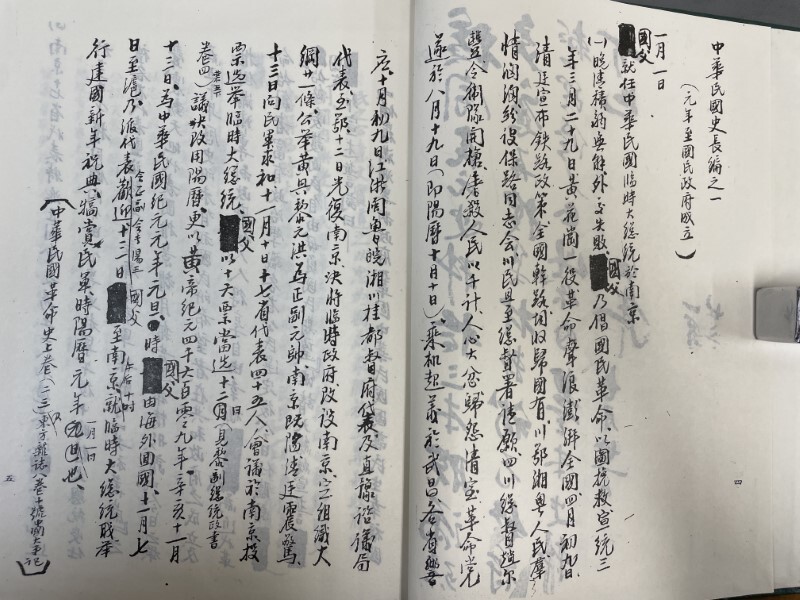 中華民國史長編之一
（元年至國民政府成立）
一月一日
國父就任中華民國臨時大總統於南京
(一)晚清積弱無能外交失敗國父乃倡國民革命以圖挽救宣統三
年三月二十九日黃花崗一役革命聲浪澎湃全國四月初九日
清廷宣布鐵路政策全國幹路均收歸國有川鄂湘粵人民羣
情洶洶紛設保路同志会川民且至總督署請願四川總督趙尔
豐令衛隊開槍屠殺人民以千计人心大忿歸怨清室革命党
遂於八月十九日（即陽曆十月十日）乘机起義於武昌各省繼
应十月初九日江浙閩魯皖湘川桂都督府代表及直豫谘議局
代表至鄂十二日光復南京決將臨時政府改設南京定組織大
綱廿一條公举黃興黎元洪為正副元帥南京既陷清廷震驚
十三日向民軍求和十一月十日十七省代表四十五人會議於南京投
票选举臨時大總統國父以十六票當选十二日（見黎副總統政書
卷四）議決改用陽曆更以黃帝紀元四千六百零九年辛亥十一月
十三日為中華民國紀元元年元旦時國父由海外回國十一月七
日至滬乃派代表歡迎十三日國父午后十时至南京就臨時大總統職举
行建國新年祝典犒賞民軍時陽曆元年一月一日也
（中華民國革命史上卷（二三東方雜誌卷十號中國大事記）
四
五